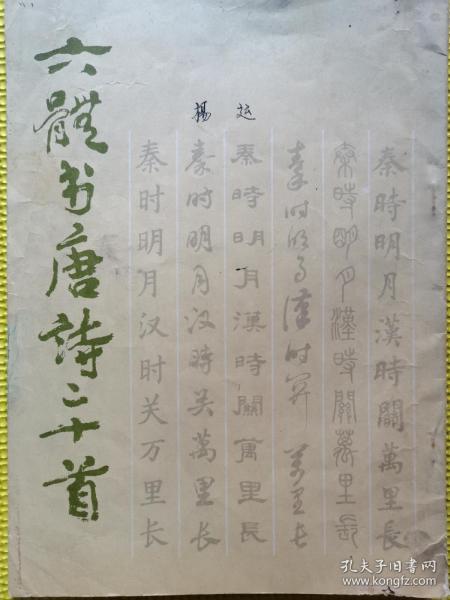 六體书唐詩二十首
楊 运
秦時明月漢時關萬里長
秦時明月漢時關萬里長
秦时明月漢时关萬里长
秦時明月漢時關萬里長
秦时明月汉時关萬里长
秦时明月汉时关万里长
孔夫子旧书网
book.kongfz.com